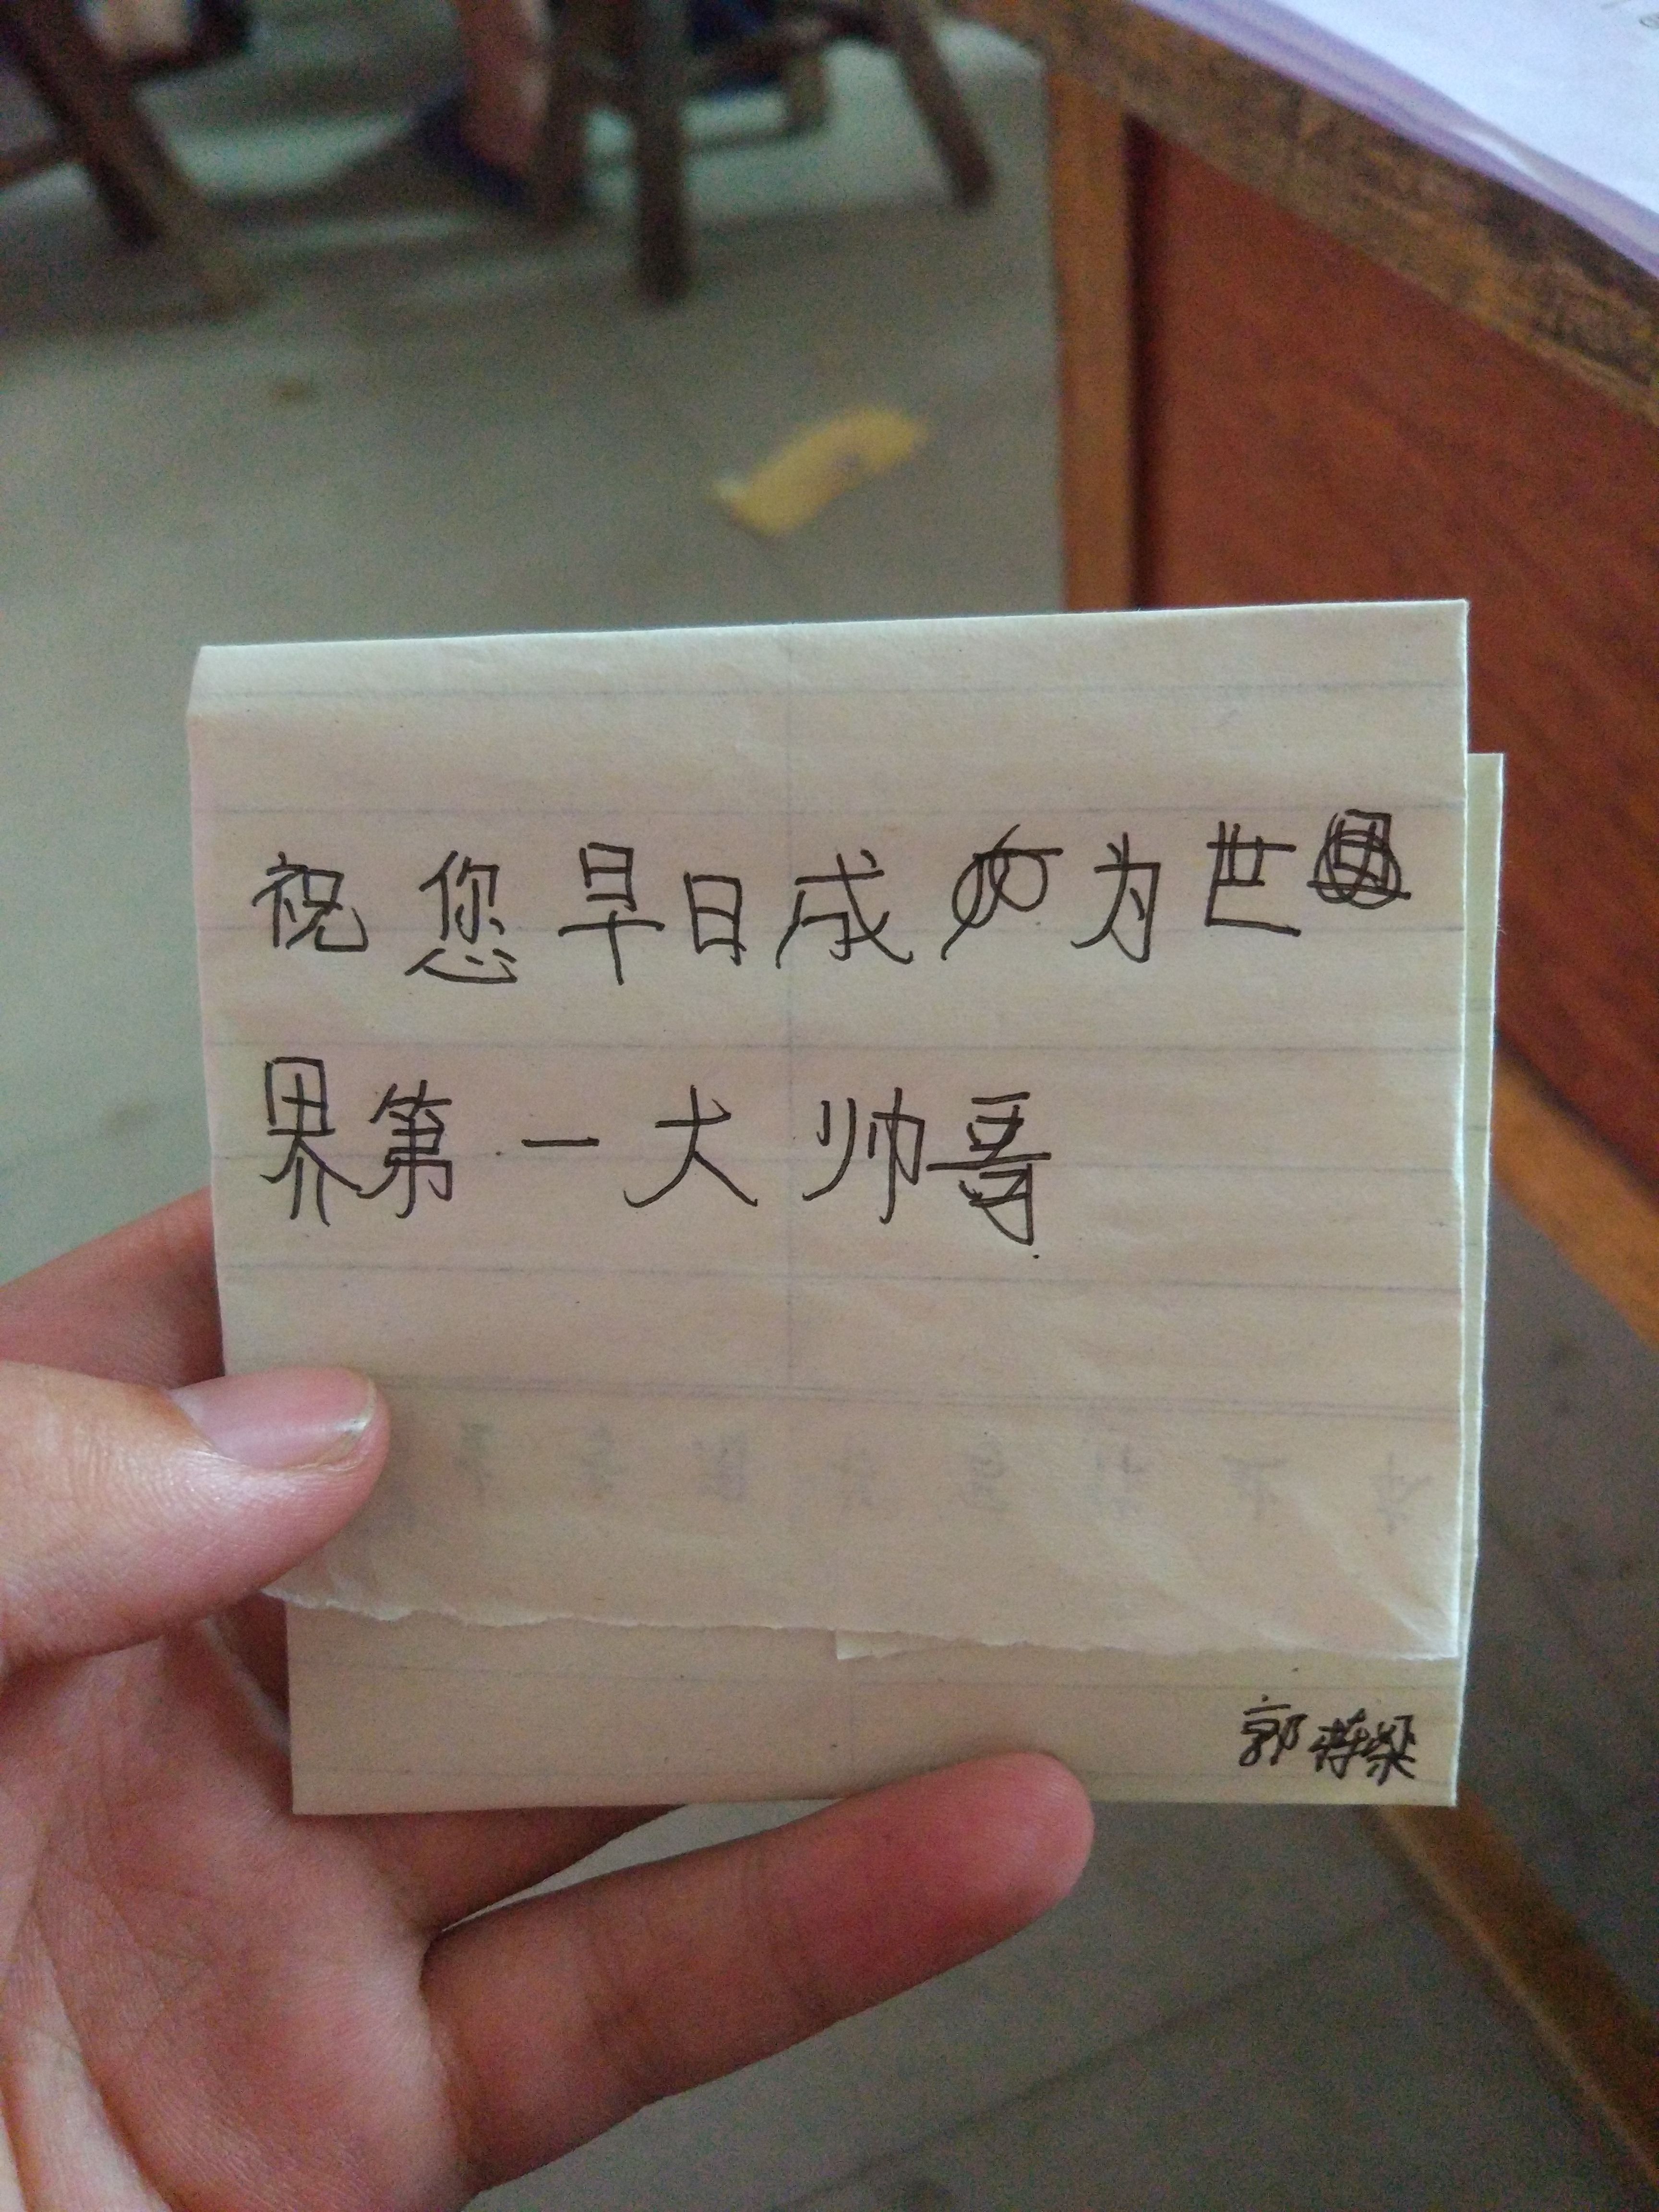 祝您早日成为世
界第一大帅哥
郭蒋燊